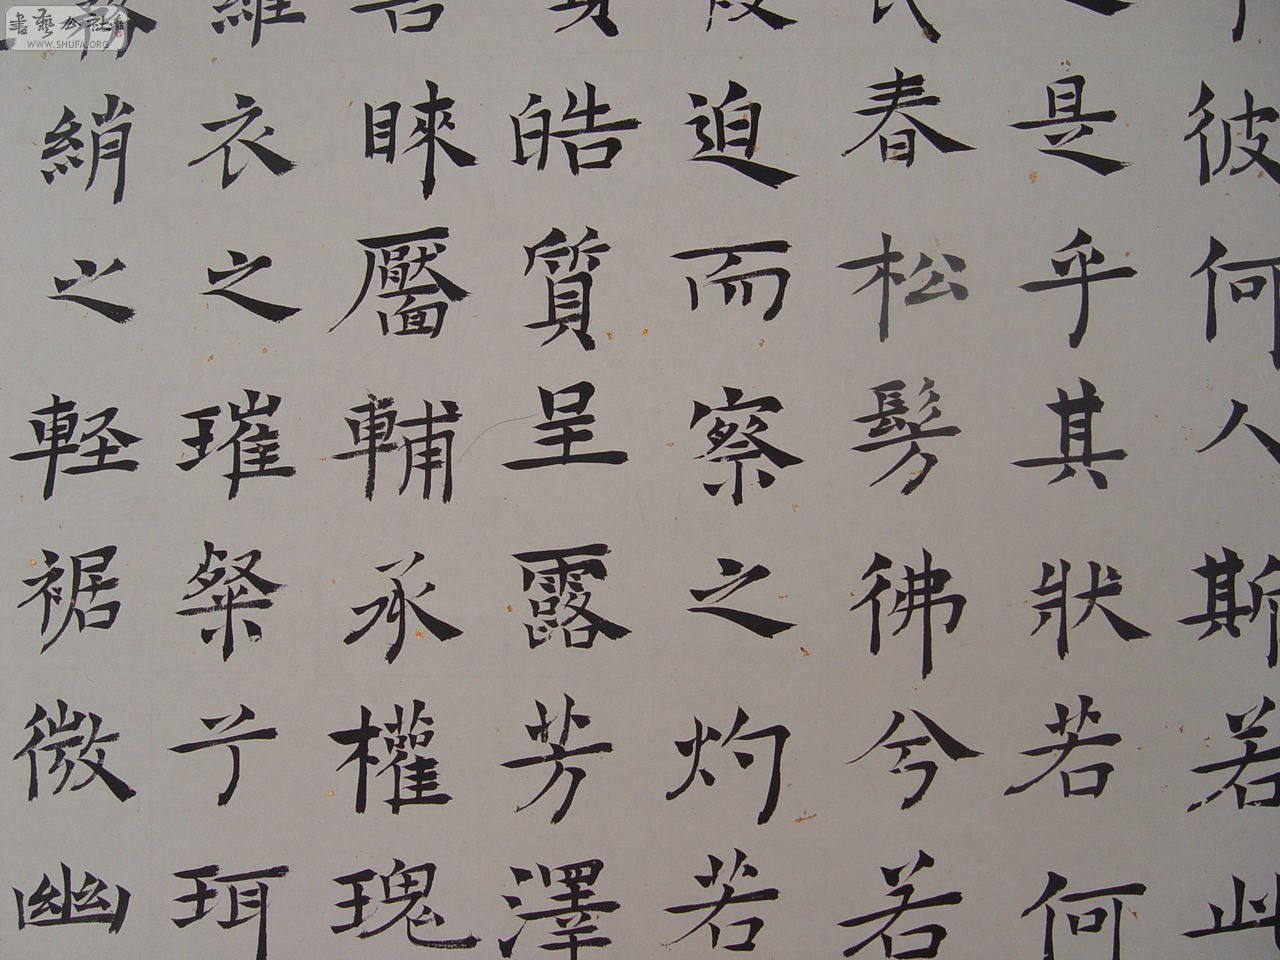 書藝公社
WWW.SHUFA.ORG
彼何人斯若此
是乎其狀若何
春松髣彿兮若
迫而察之灼若
皓質呈露芳澤
睞靨輔承權瑰
羅衣之璀粲兮珥
綃之軽裾微幽